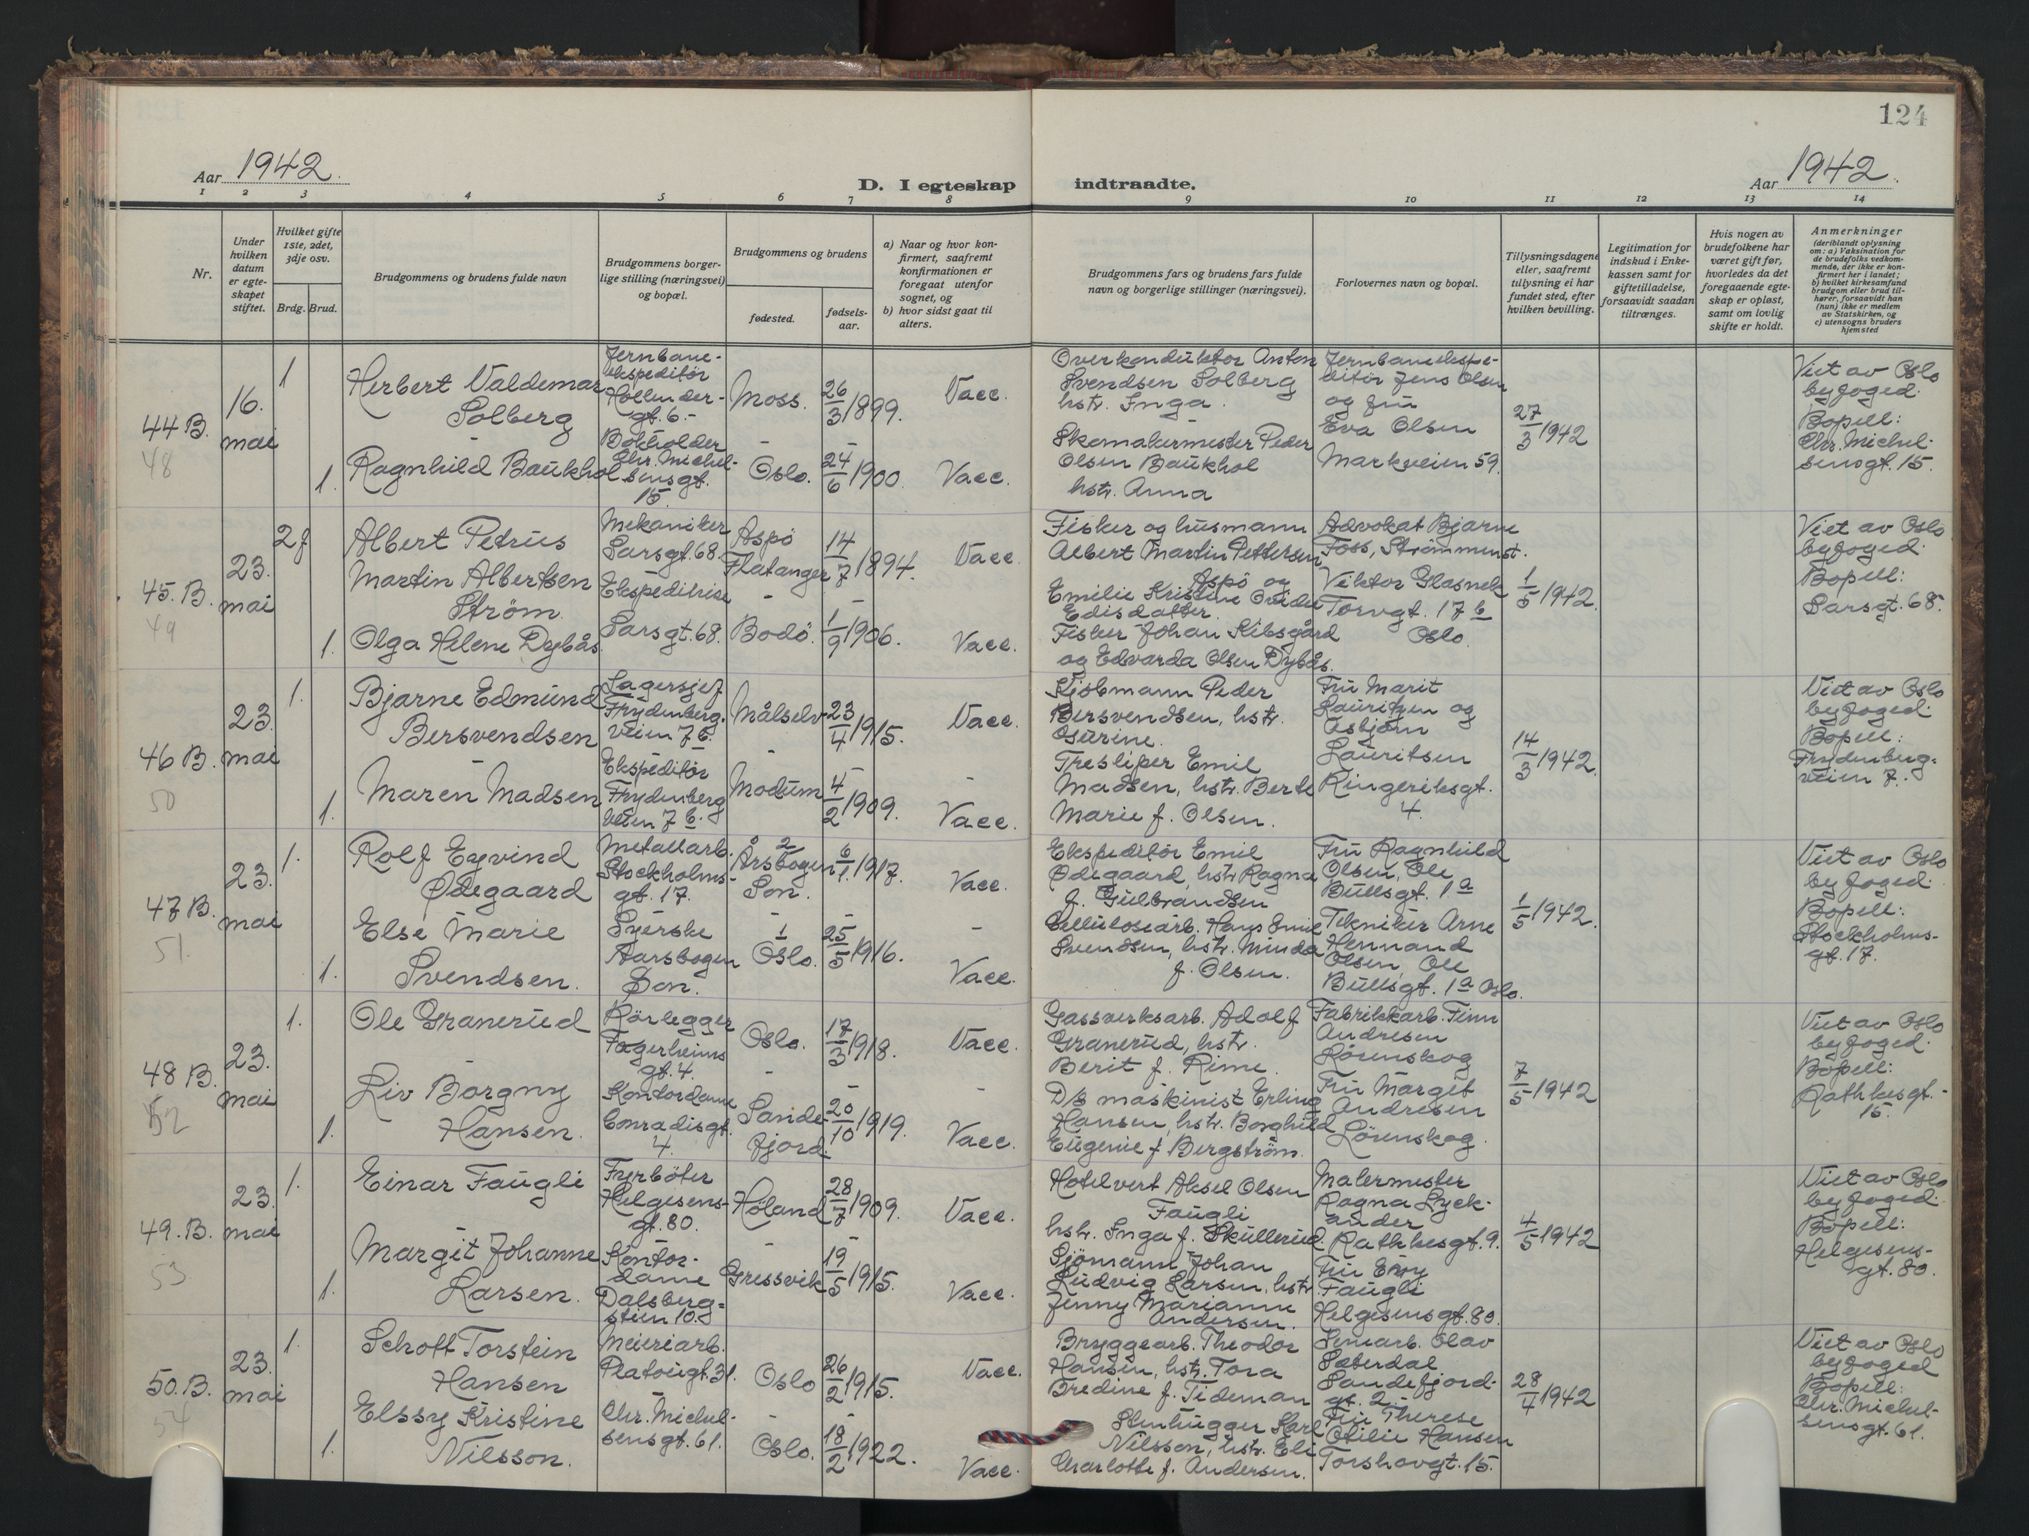 124
Aar 1942.
D. I egteskap indtraadte.
Aar 1942.
1 2 3 4 5 6 7 8 9 10 11 12 13 14
Nr.
Under hvilken datum er egteskapet stiftet.
Hvilket gifte 1ste, 2det, 3dje osv.
Brdg. Brud.
Brudgommens og brudens fulde navn
Brudgommens borgerlige stilling (næringsvei) og bopæl.
Brudgommens og brudens
fødested.
fødselsaar.
a) Naar og hvor konfirmert, saafremt konfirmationen er foregaat utenfor sognet, og
b) hvor sidst gaat til alters.
Brudgommens fars og brudens fars fulde navn og borgerlige stillinger (næringsvei).
Forlovernes navn og bopæl.
Tillysningsdagene eller, saafremt tillysning ei har fundet sted, efter hvilken bevilling.
Legitimation for indskud i Enkekassen samt for giftetilladelse, forsaavidt saadan tiltrænges.
Hvis nogen av brudefolkene har været gift før, hvorledes da det foregaaende egteskap er opløst, samt om lovlig skifte er holdt.
Anmerkninger
(deriblandt oplysning om: a) Vaksination for de brudefolks vedkommende, der ikke er konfirmert her i landet; b) hvilket kirkesamfund brudgom eller brud tilhører, forsaavidt han (hun) ikke er medlem av Statskirken, og c) utensogns bruders hjemsted
44 B.
48
16. mai
1
Herbert Valdemar Solberg
Jernbaneekspeditør
Hollendergt. 6.
Moss.
26/3 1899.
Vacc.
Overkonduktør Anton Svendsen Solberg
hstr. Inga.
Jernbaneekspeditør Jens Olsen og fru
Eva Olsen
Markveien 59.
27/3 1942
Viet av Oslo byfoged.
Bopell:
Chr. Michelsensgt. 15.
1.
Ragnhild Baukhol
Bokholder
Chr. Michelsensgt. 15
Oslo.
24/6 1900.
Vacc.
Skomakermester Peder Olsen Baukhol
hstr. Anna
45. B.
49
23. mai
2 f
Albert Petrus Martin Albertsen Strøm.
Mekaniker
Sarsgt. 68.
Aspø Flatanger
14/7 1894.
Vacc.
Fisker og husmann
Albert Martin Pettersen
Aspø og
Emilie Kristine
Edisdatter.
Advokat Bjarne Foss, Strømmenst.
Viktor Glasnek
Torvgt. 17 b
Oslo
1/5 1942.
Viet av Oslo byfoged.
Bopell:
Sarsgt. 68.
1.
Olga Helene Dybås.
Ekspeditrise
Sarsgt. 68.
Bodø.
1/9 1906.
Vacc.
Fisker Johan Kibsgård
og Edvarda Olsen Dybås.
46 B.
50
23. mai
1.
Bjarne Edmund Bersvendsen
Lagersjef
Frydenbergveien 7 b.
Målselv
23/4 1915.
Vacc.
Kjøbmann Peder Bersvendsen, hstr.
Fru Marit Lauritzen og
Asbjørn Lauritsen
Ringeriksgt. 4.
14/3 1942.
Viet av Oslo byfoged.
Bopell:
Frydenbergveien 7.
1.
Maren Madsen
Ekspeditør
Frydenbergveien 7 b.
Modum
4/2 1909.
Vacc.
Tresliper Emil Madsen, hstr. Berte
Marie f. Olsen.
47 B.
51.
23. mai
1.
Rolf Eyvind Ødegaard
Metallarb.
Stockholmsgt. 17.
2
Årsbogen Son.
6/1 1917.
Vacc.
Ekspeditør Emil Ødegaard, hstr. Ragna
f. Gulbrandsen
Fru Ragnhild Olsen, Ole Bullsgt. 1 a
Tekniker Arne Hennand Olsen, Ole
Bullsgt. 1 a Oslo.
1/5 1942.
Viet av Oslo byfoged.
Bopell:
Stockholmsgt. 17.
1.
Else Marie Svendsen.
Syerske
Aarsbogen Son.
1
Oslo.
25/5 1916.
Vacc.
Cellulosearb. Hans Emil Svendsen, hstr. Minda
f. Olsen.
48 B.
52
23. mai
1.
Ole Granerud
Rørlegger
Fagerheimsgt. 4.
Oslo.
17/3 1918.
Vacc.
Gassverksarb. Adolf Granerud, hstr.
Berit f. Rime.
Fabrikkarb. Finn Andresen
Lørenskog
Fru Margit Andresen
Lørenskog.
7/5 1942
Viet av Oslo byfoged.
Bopell:
Rathkesgt. 15.
1.
Liv Borgny Hansen.
Kontordame
Conradisgt. 4.
Sandefjord.
20/10 1919.
Vacc.
D/s maskinist Erling Hansen, hstr. Borghild
Eugenie f Bergstrøm.
49. B.
53
23. mai
1.
Einar Faugli
Fyrbøter
Helgesensgt. 80.
Høland
28/7 1909.
Vacc.
Hotelvert Aksel Olsen Faugli
hstr. Inga f. Skullerud.
Malermester Ragna Lyckander
Rathkesgt. 9.
Fru Faugli
Helgesensgt. 80.
4/5 1942
Viet av Oslo byfoged.
Bopell:
Helgesensgt. 80.
1.
Margit Johanne Larsen.
Kontordame
Dalsbergstien 10.
Gressvik
19/5 1915.
Vacc.
Sjømann Johan Ludvig Larsen, hstr.
Jenny Marianne Andersen.
50. B.
54
23. mai
1.
Schott Torstein Hansen
Meieriarb.
Platougt. 31.
Oslo
26/2 1915.
Vacc.
Bryggearb. Theodor Hansen, hstr. Tora
Bredine f. Tideman
Olav Sæterdal
Sandefjordgt. 2.
Fru Therese Otilie Hansen
Torshovgt. 15.
28/4 1942
Viet av Oslo byfoged
Bopell:
Chr. Michelsensgt. 61.
1.
Elssy Kristine Nilsson.
Chr. Michelsensgt. 61.
Oslo.
18/2 1922.
Vacc.
Stenhugger Karl Nilsson, hstr. Eli
Charlotte f. Andersen.